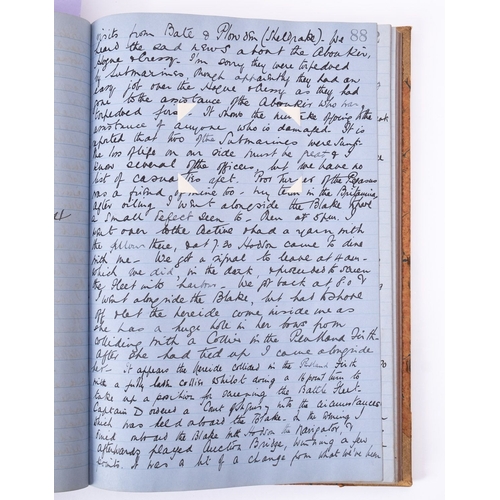 88
visits from Bate & Plowden (Sheldrake). We
heard the sad news about the Aboukir,
Hogue & Cressy. I'm sorry they were torpedoed
by Submarines, though apparently they had an
easy job over the Hogue & Cressy as they had
gone to the assistance of the Aboukir who was
torpedoed first. It shows the mistake of going to the
assistance of anyone who is damaged. It is
reported that two of the Submarines were sunk.
The loss of life on our side must be great & I
know several of the officers, but we have no
list of casualties yet. Poor of the Pegasus
was a friend of mine too - my term in the Britannia.
After oiling I went alongside the Blake to have
a small defect seen to - Then at 5pm I
went over to the Active & had a yarn with
the fellows there, & at 7.30 Hodson came to dine
with me - We got a signal to leave at 4am -
which we did, in the dark, & proceeded to screen
the Fleet into harbour. We got back at 8.0 &
I went alongside the Blake, but had to shove
off & let the Nereide come inside me as
she has a huge hole in her bows from
colliding with a Collier in the Pentland Firth.
After she had tied up I came alongside
her - it appears the Nereide collided in the Pentland Firth
with a collier whilst doing a 16 point turn to
take up a position for screening the Battle Fleet.
Captain D ordered a Court of Enquiry into the circumstances
which was held aboard the Blake. In the evening I
dined aboard the Blake with Hodson the Navigator &
afterwards played Auction Bridge, winning a few
points. It was a bit of a change from what we've been